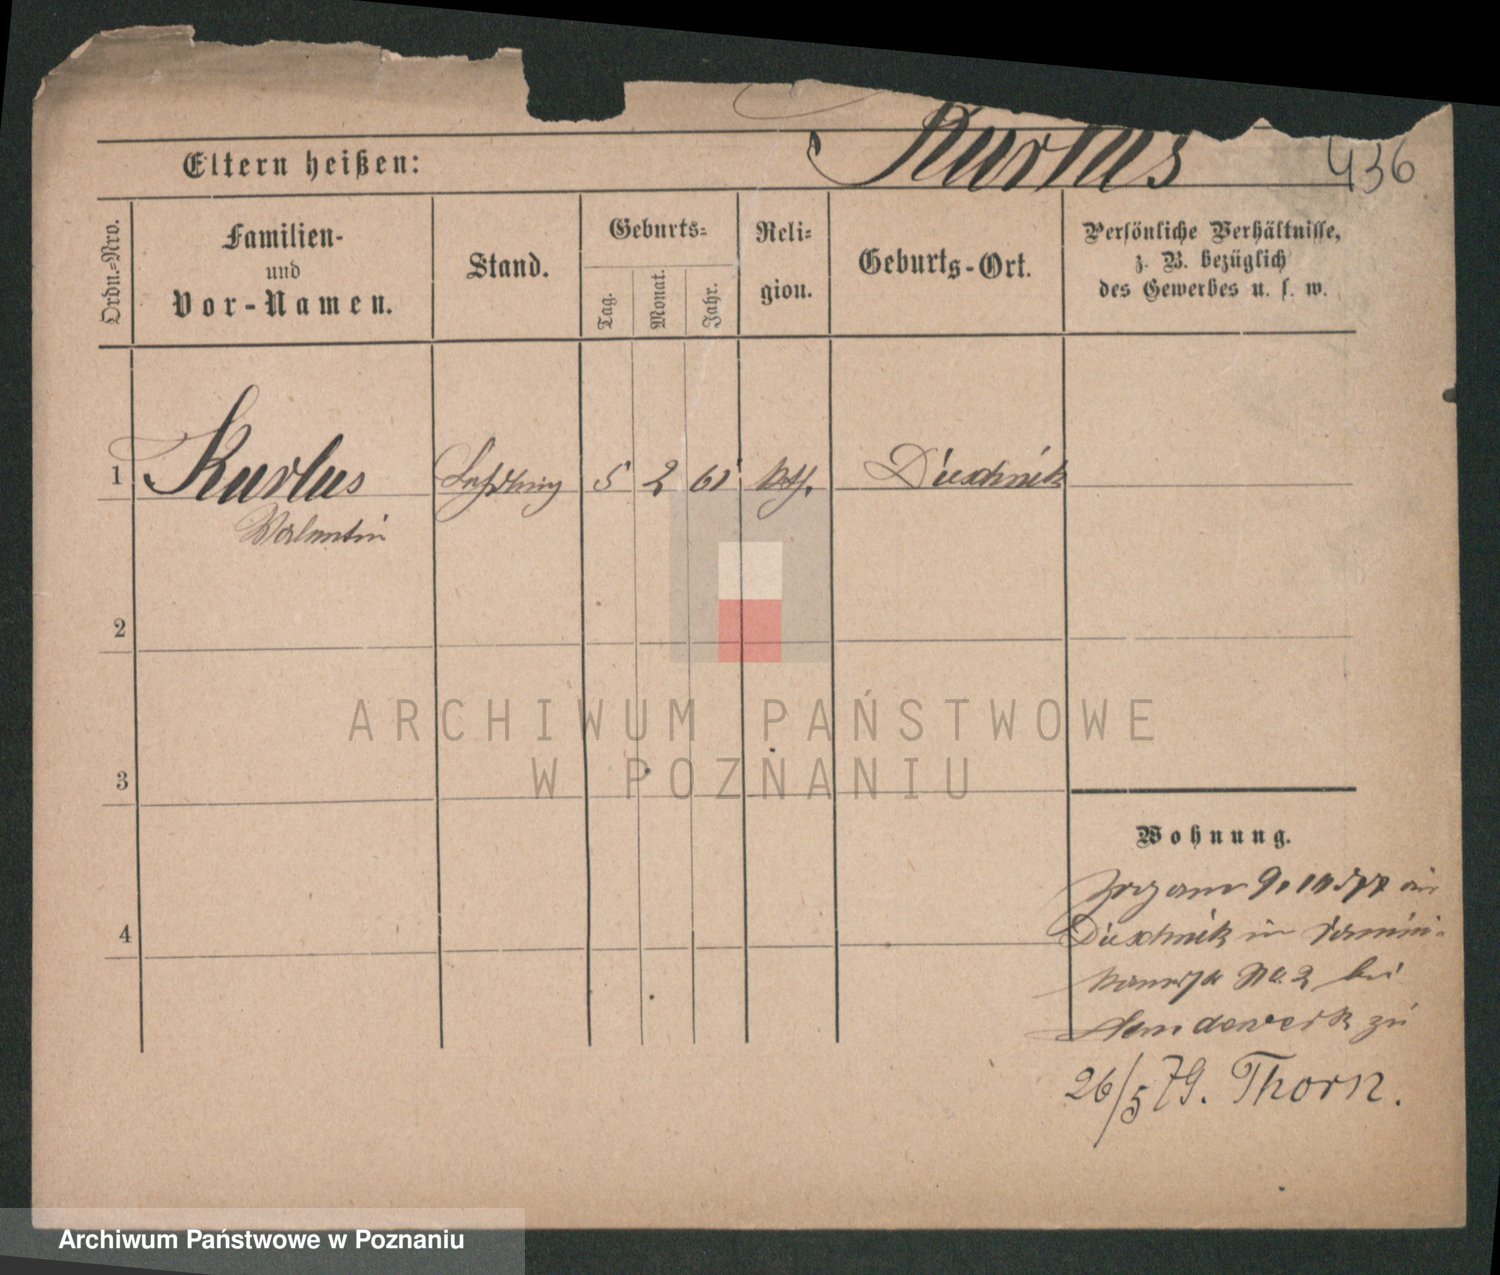 Kurtus
436
Eltern heißen:
Ordn.-Nro.
Familien-
und
Vor-Namen.
Stand.
Geburts-
Tag.
Monat.
Jahr.
Reli-
gion.
Geburts-Ort.
Persönliche Verhältnisse,
z. B. bezüglich
des Gewerbes u. s. w.
1 Kurtus Lehrling 5 2 61 kth. Duschnik
Valentin
2
3
4
Wohnung.
Zuzg am 9. 10 577
Duschnik in Domini-
kanerstr No. 2 bei
zu
26/5 79. Thorn.
ARCHIWUM PAŃSTWOWE
W POZNANIU
Archiwum Państwowe w Poznaniu